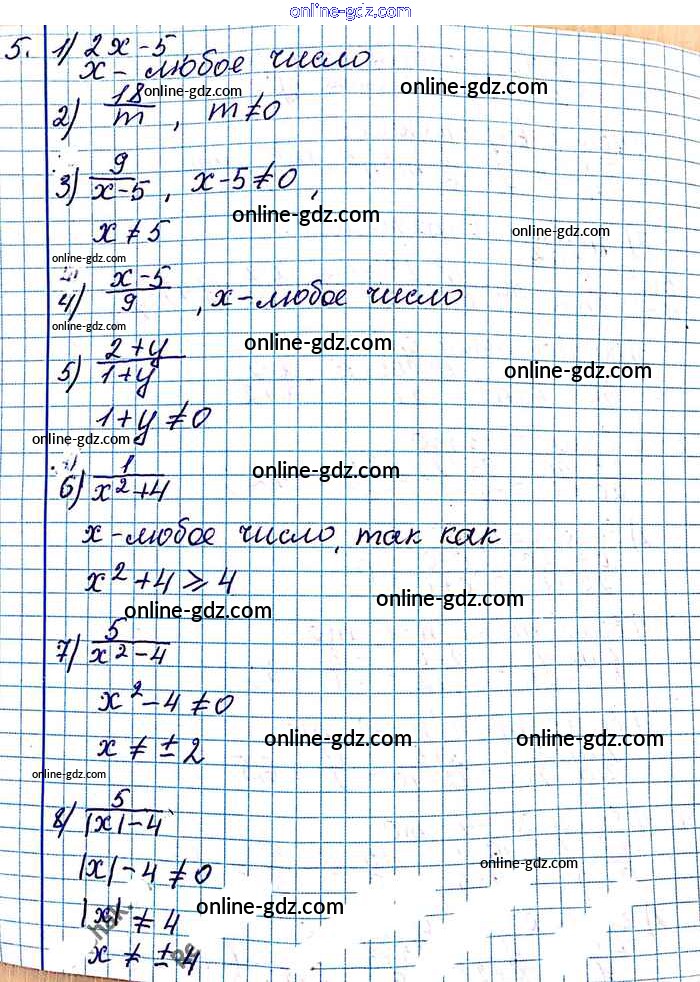 online-gdz.com
5. 1) 2x - 5
x - любое число
online-gdz.com online-gdz.com
2) 18/m, m ≠ 0
3) 9/(x-5), x-5 ≠ 0,
online-gdz.com
x ≠ 5 online-gdz.com
online-gdz.com
4) (x-5)/9, x-любое число
online-gdz.com
online-gdz.com
5) (2+y)/(1+y) online-gdz.com
1+y ≠ 0
online-gdz.com
online-gdz.com
6) 1/(x²+4)
x-любое число, так как
x²+4 ⩾ 4
online-gdz.com online-gdz.com
7) 5/(x²-4)
x²-4 ≠ 0
x ≠ ±2 online-gdz.com online-gdz.com
online-gdz.com
8) 5/(|x|-4)
|x|-4 ≠ 0 online-gdz.com
|x| ≠ 4 online-gdz.com
x ≠ ±4